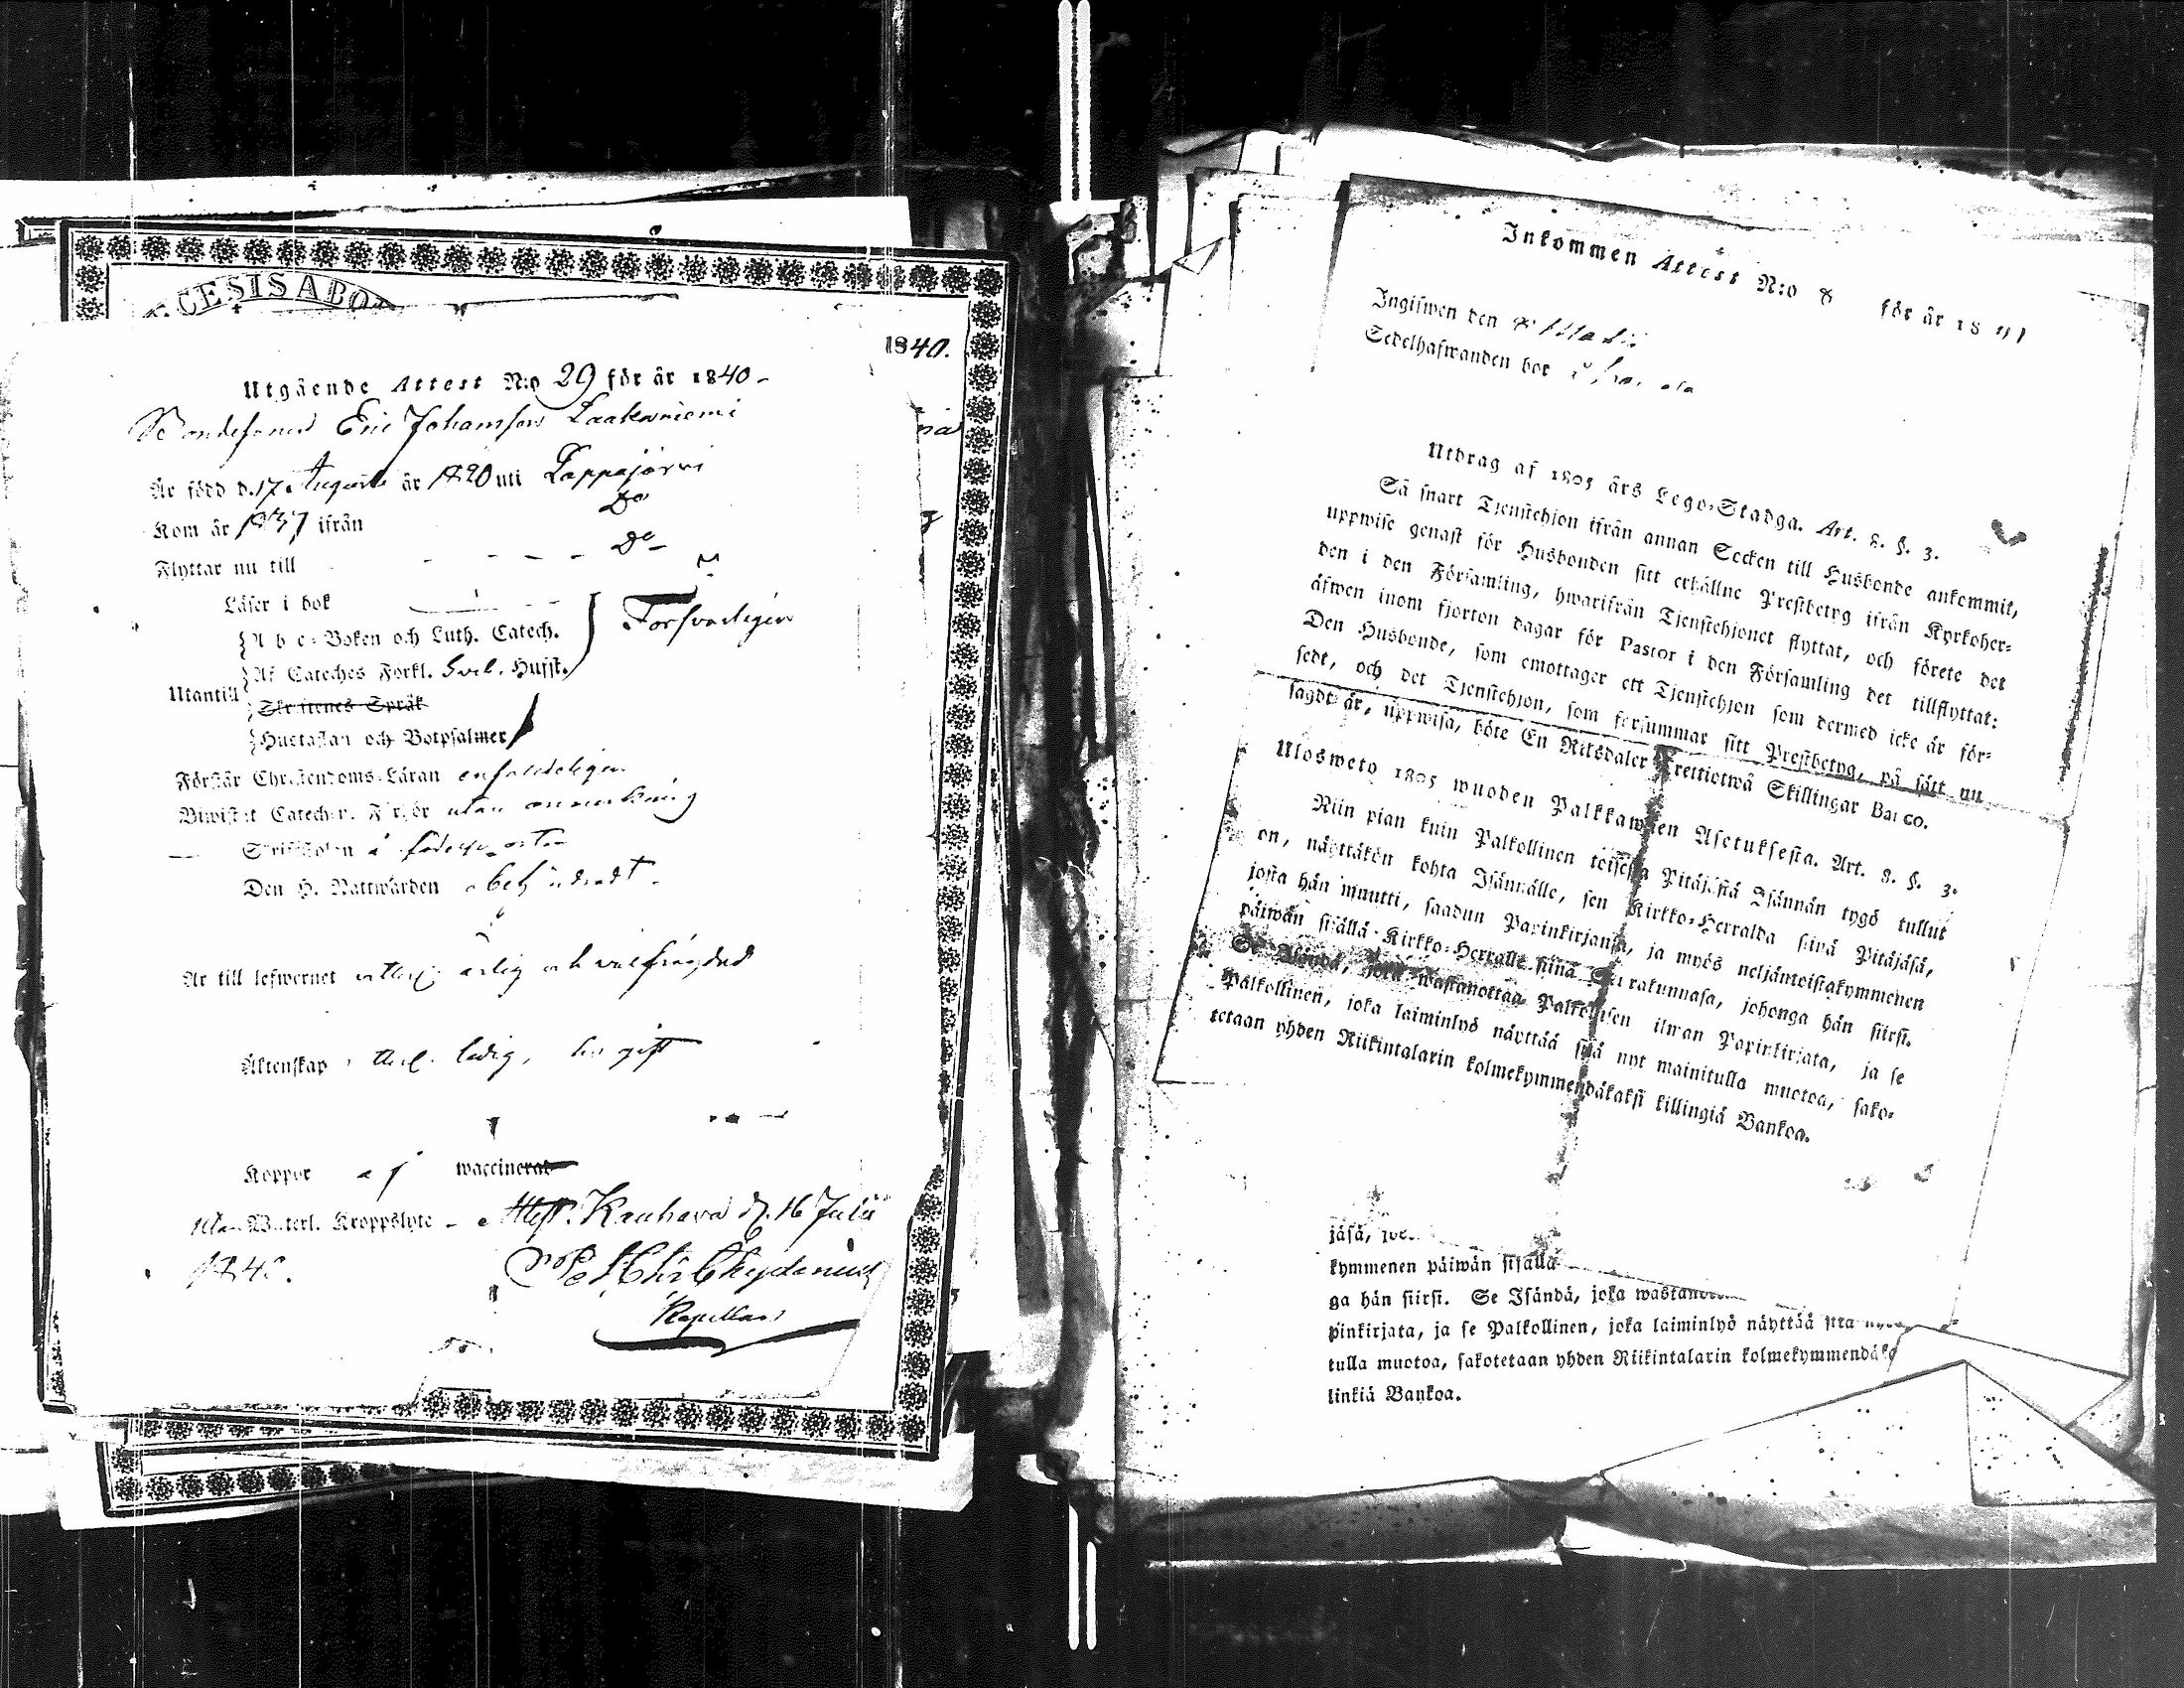 CESIS ABO
1840.
Utgående Attest N:o 29 för år 1840
Bondesonen Eric Johansson Laakaniemi
Är född d. 17 Augusti år 1820 uti Lappajärvi
Kom år 1837 ifrån Do
Flyttar nu till - - - - Do
Läser i bok
Försvarligen
A b c-Boken och Luth. Catech.
Af Cateches Förkl. Sveb. Hufst.
Utantill
Skriftenes Språk
Hustaflan och Botpsalmer
Förstår Christendoms-Läran enfaldeligen
Biwistat Catech. Förhör utan anmärkning
Skriftskolan å
Den H. Nattwarden begådt
Är till lefwernet ärlig och välfrägdad
Äktenskap ledig, gift
Koppor ej waccinerat
utan Waterl. Kroppslyte - Attest. Kauhava d. 16 Julii
1840.
Kapellan
Inkommen Attest N:o 8 för år 1841
Ingifwen den 8
Sedelhafwanden bor
Utdrag af 1805 års Lego-Stadga. Art. 8. §. 3.
Så snart Tjenstehjon ifrån annan Socken till Husbonde ankommit,
uppwise genast för Husbonden sitt erhållne Prestbetyg ifrån Kyrkoher-
den i den Församling, hwarifrån Tjenstehjonet flyttat, och förete det
äfwen inom fjorton dagar för Pastor i den Församling det tillflyttat:
Den Husbonde, som emottager ett Tjenstehjon som dermed icke är för-
sedt, och det Tjenstehjon, som försummar sitt Prestbetyg, på sätt nu
sagdt är, uppwisa, böte En Riksdaler Trettiotwå Skillingar Banco.
Ulosweto 1805 wuoden Palkkawäen Asetuksesta. Art. 8. §. 3.
Niin pian kuin Palkollinen toisesta Pitäjästä Isännän tygö tullut
on, näyttäkön kohta Isännälle, sen Kirkko-Herralda siinä Pitäjäsä,
josta hän muutti, saadun Papinkirjansa, ja myös neljäntoistakymmenen
päiwän sisällä Kirkko-Herralle siinä Seurakunnasa, johonga hän siirsi.
Se Isändä, joka wastanottaa Palkollisen ilman Papinkirjata, ja se
Palkollinen, joka laiminlyö näyttää sitä nyt mainitulla muotoa, sako-
tetaan yhden Riikintalarin kolmekymmendäkaksi killingiä Bankoa.
jäsä,
kymmenen päiwän sisällä
ga hän siirsi. Se Isändä, joka
pinkirjata, ja se Palkollinen, joka laiminlyö näyttää sitä
tulla muotoa, sakotetaan yhden Riikintalarin kolmekymmendäka
linkiä Bankoa.